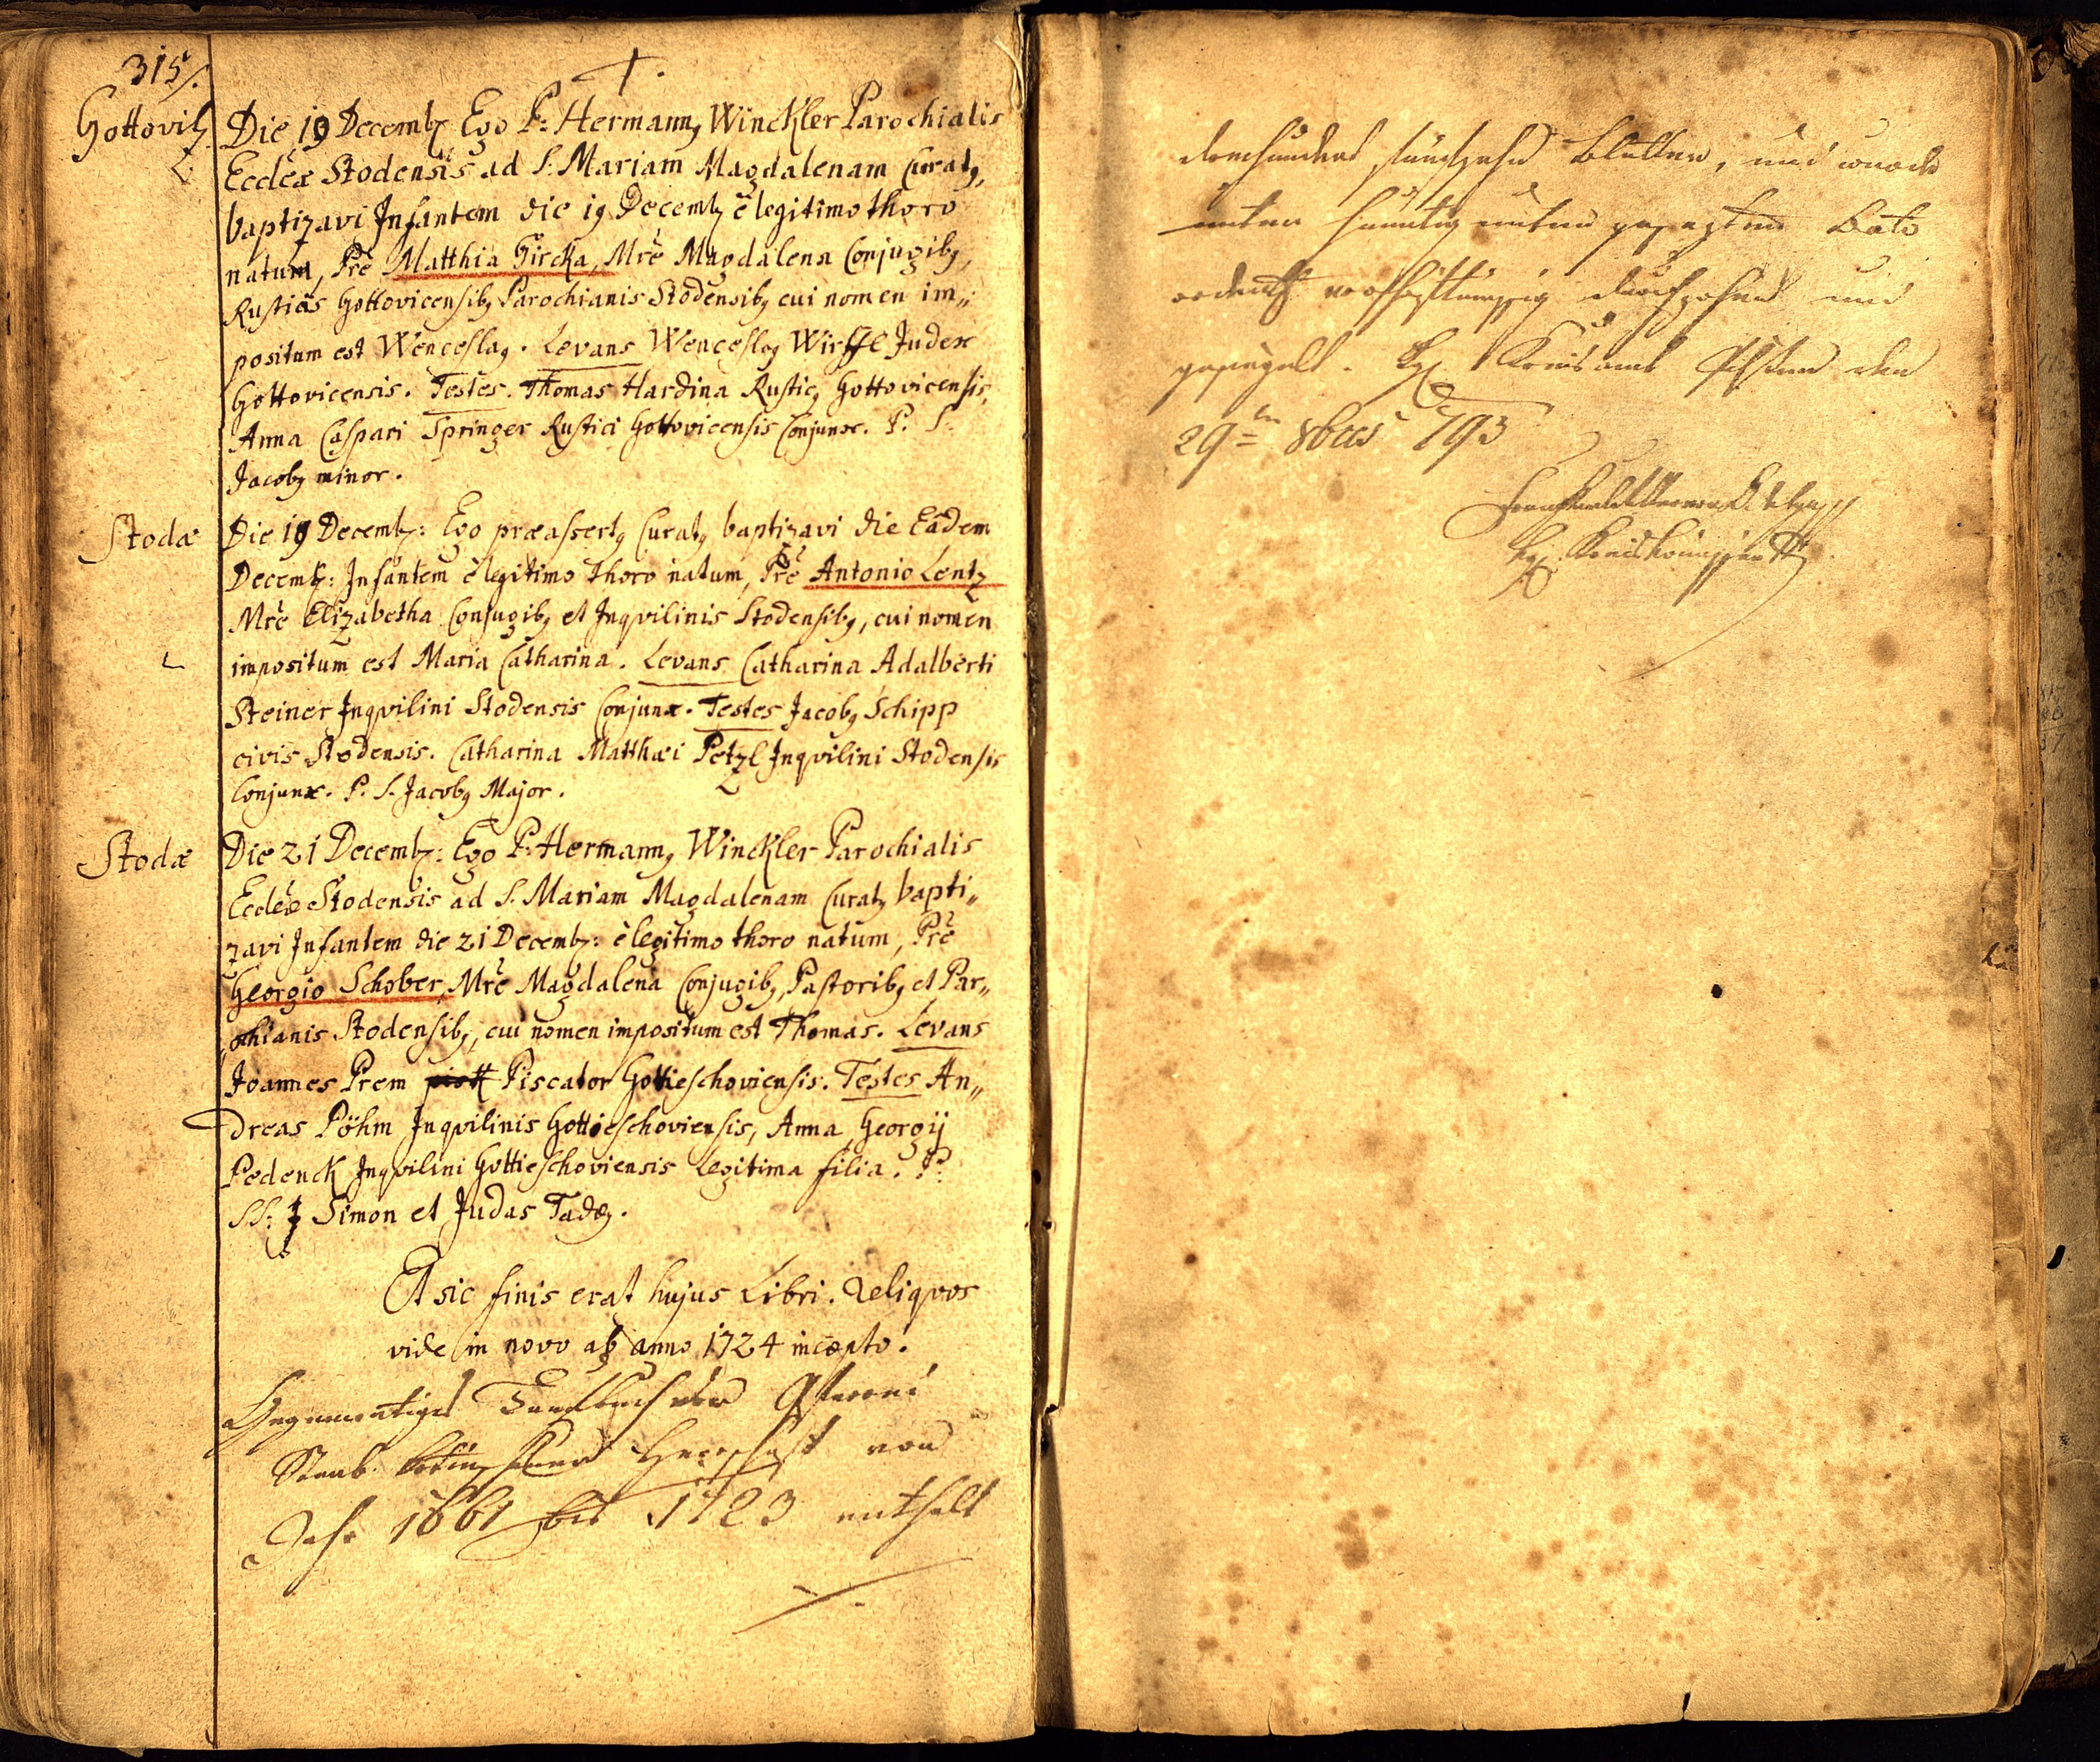 315/.
†.
Gottovitz
Die 19 Decemb: Ego P: Hermann9 Winckler Parochialis
Eccleæ Stodensis ad S: Mariam Magdalenam Curat9,
baptizavi Infantem die 19 Decemb: è legitimo thoro
natum, Pre Matthia Gircka, Mre Magdalena Conjugib9,
Rusticis Gottovicensib9 Parochianis Stodensib9 cui nomen im„
positum est Wenceslag. Levans Wenceslg Wirffl Judex
Gottovicensis. Testes. Thomas Hardina Rustic9 Gottovicensis,
Anna Caspari Springer Rustici Gottovicensis Conjunx. P. S.
Jacob9 minor.
Stodæ
Die 19 Decemb: Ego præassert9 Curat9 baptizavi die Eâdem
Decemb: Infantem è legitimo thoro natum, Pre Antonio Lentz
Mre Elizabetha Conjugib9 et Inqvilinis Stodensib9, cui nomen
impositum est Maria Catharina. Levans Catharina Adalberti
Steiner Inqvilini Stodensis Conjunx. Testes Jacob9 Schipp
civis Stodensis. Catharina Matthæi Petzl Inqvilini Stodensis
Conjunx. P. S. Jacob9 Major.
Stodæ
Die 21 Decemb: Ego P: Hermann9 Winckler Parochialis
Eccleæ Stodensis ad S. Mariam Magdalenam Curat9 bapti„
zavi Infantem die 21 Decemb: è legitimo thoro natum, Pre
Georgio Schober, Mre Magdalena Conjugib9, Pastorib9 et Par„
ochianis Stodensib9, cui nomen impositum est Thomas. Levans
Joannes Prem Piscator Gottieschoviensis. Testes An„
dreas Pöhm Inqvilinis Gottieschoviensis, Anna Georgij
Pedenck Inqvilini Gottieschoviensis Legitima filia. P:
SS: Simon et Judas Tadæ9.
Et sic finis erat hujus Libri. Reliqvos
vide in novo ab anno 1724 incæpto.
Gegenwärtiges Taufbuch der Pfarrei
Staab Herrschaft von
Jahr 1661 bis 1723 enthält
dreihundert fünfzehn Blätter, und wurde
unter heutig unten gesezten Dato
ordentl. vorschriftmässig durchzogen und
gesiegelt. Kgl. Kreisamt Pilsen den
29ten 8bris 793
Kgl. Kreiskommissär